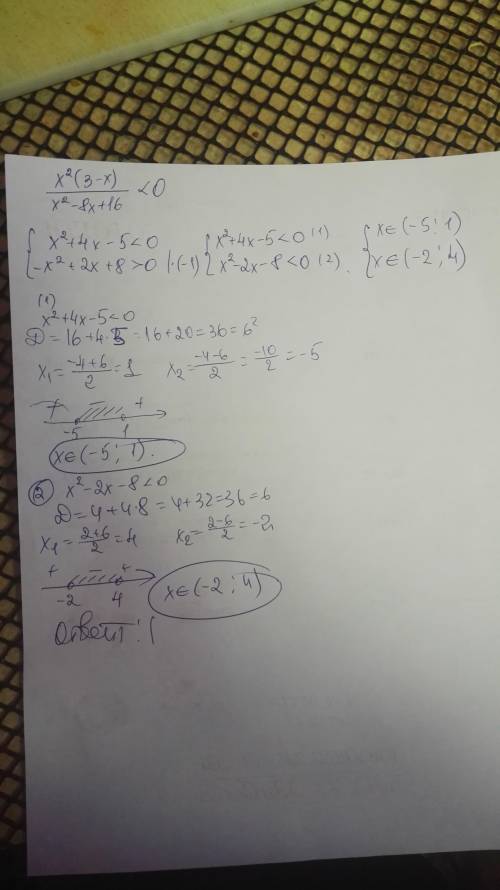 x²(3-x) / x²-8x+16 <0
{ x²+4x-5<0 { x²+4x-5<0 (1) { x∈(-5; 1)
-x²+2x+8>0 |·(-1) x²-2x-8<0 (2). x∈(-2; 4)
(1)
x²+4x-5<0
D=16+4·5=16+20=36=6²
x₁=-4+6/2=1 x₂=-4-6/2=-10/2=-5
+ - +
-5 1
x∈(-5; 1).
2 x²-2x-8<0
D=4+4·8=4+32=36=6
x₁=2+6/2=4 x₂=2-6/2=-2
+ - +
-2 4 x∈(-2; 4)
Ответ: (